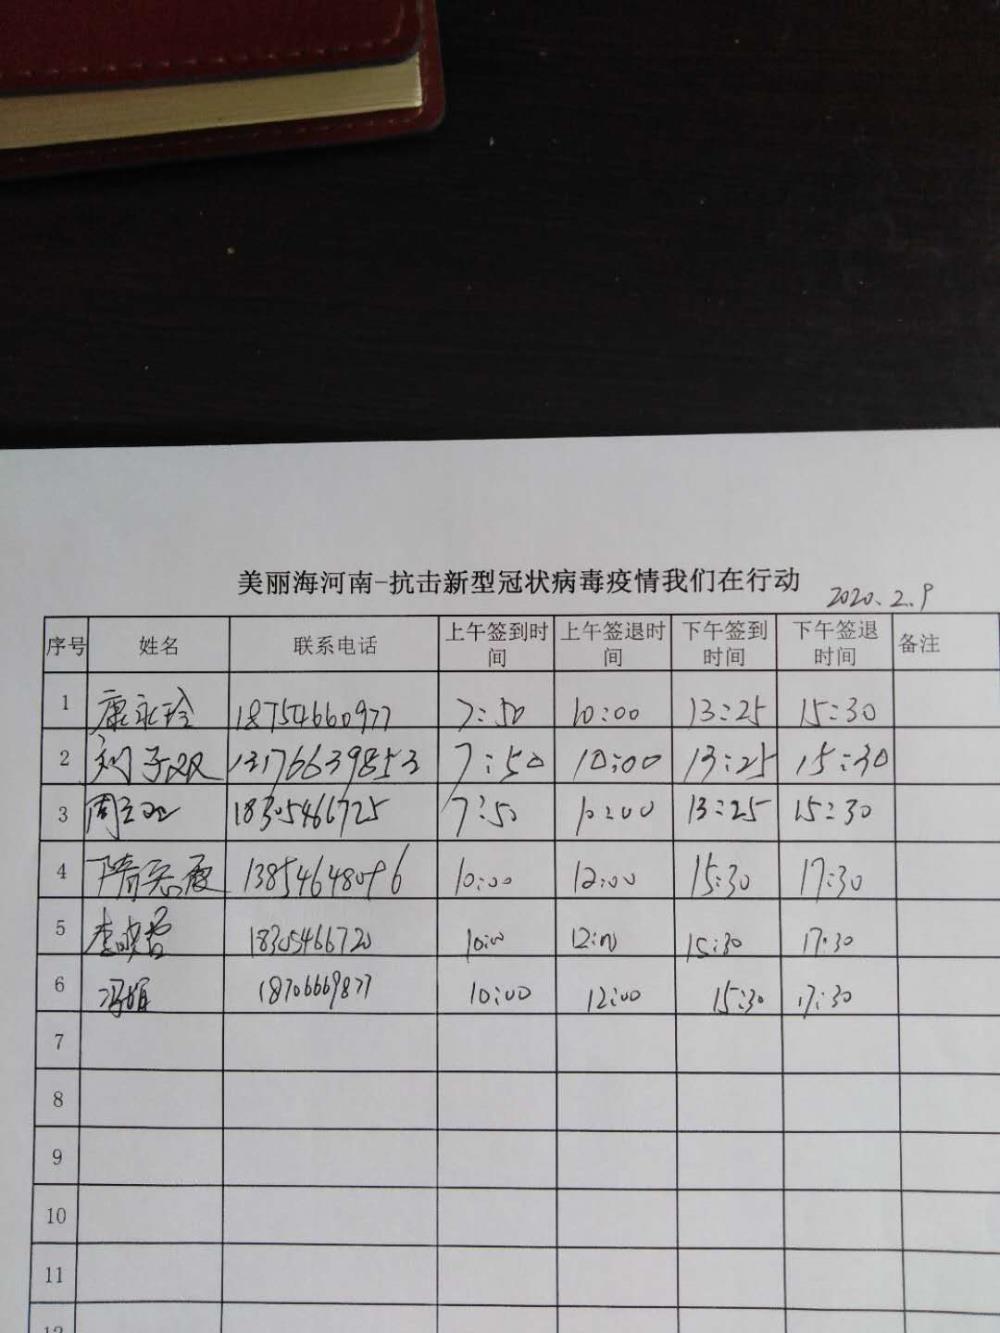 美丽海河南-抗击新型冠状病毒疫情我们在行动
2020.2.9
序号 姓名 联系电话 上午签到时间 上午签退时间 下午签到时间 下午签退时间 备注
1 康永玲 18754660977 7:50 10:00 13:25 15:30
2 刘子双 13176639853 7:50 10:00 13:25 15:30
3 周 18305466725 7:50 10:00 13:25 15:30
4 隋 霞 13854648096 10:00 12:00 15:30 17:30
5 李 18305466720 10:00 12:00 15:30 17:30
6 冯娟 18706669877 10:00 12:00 15:30 17:30
7
8
9
10
11
12